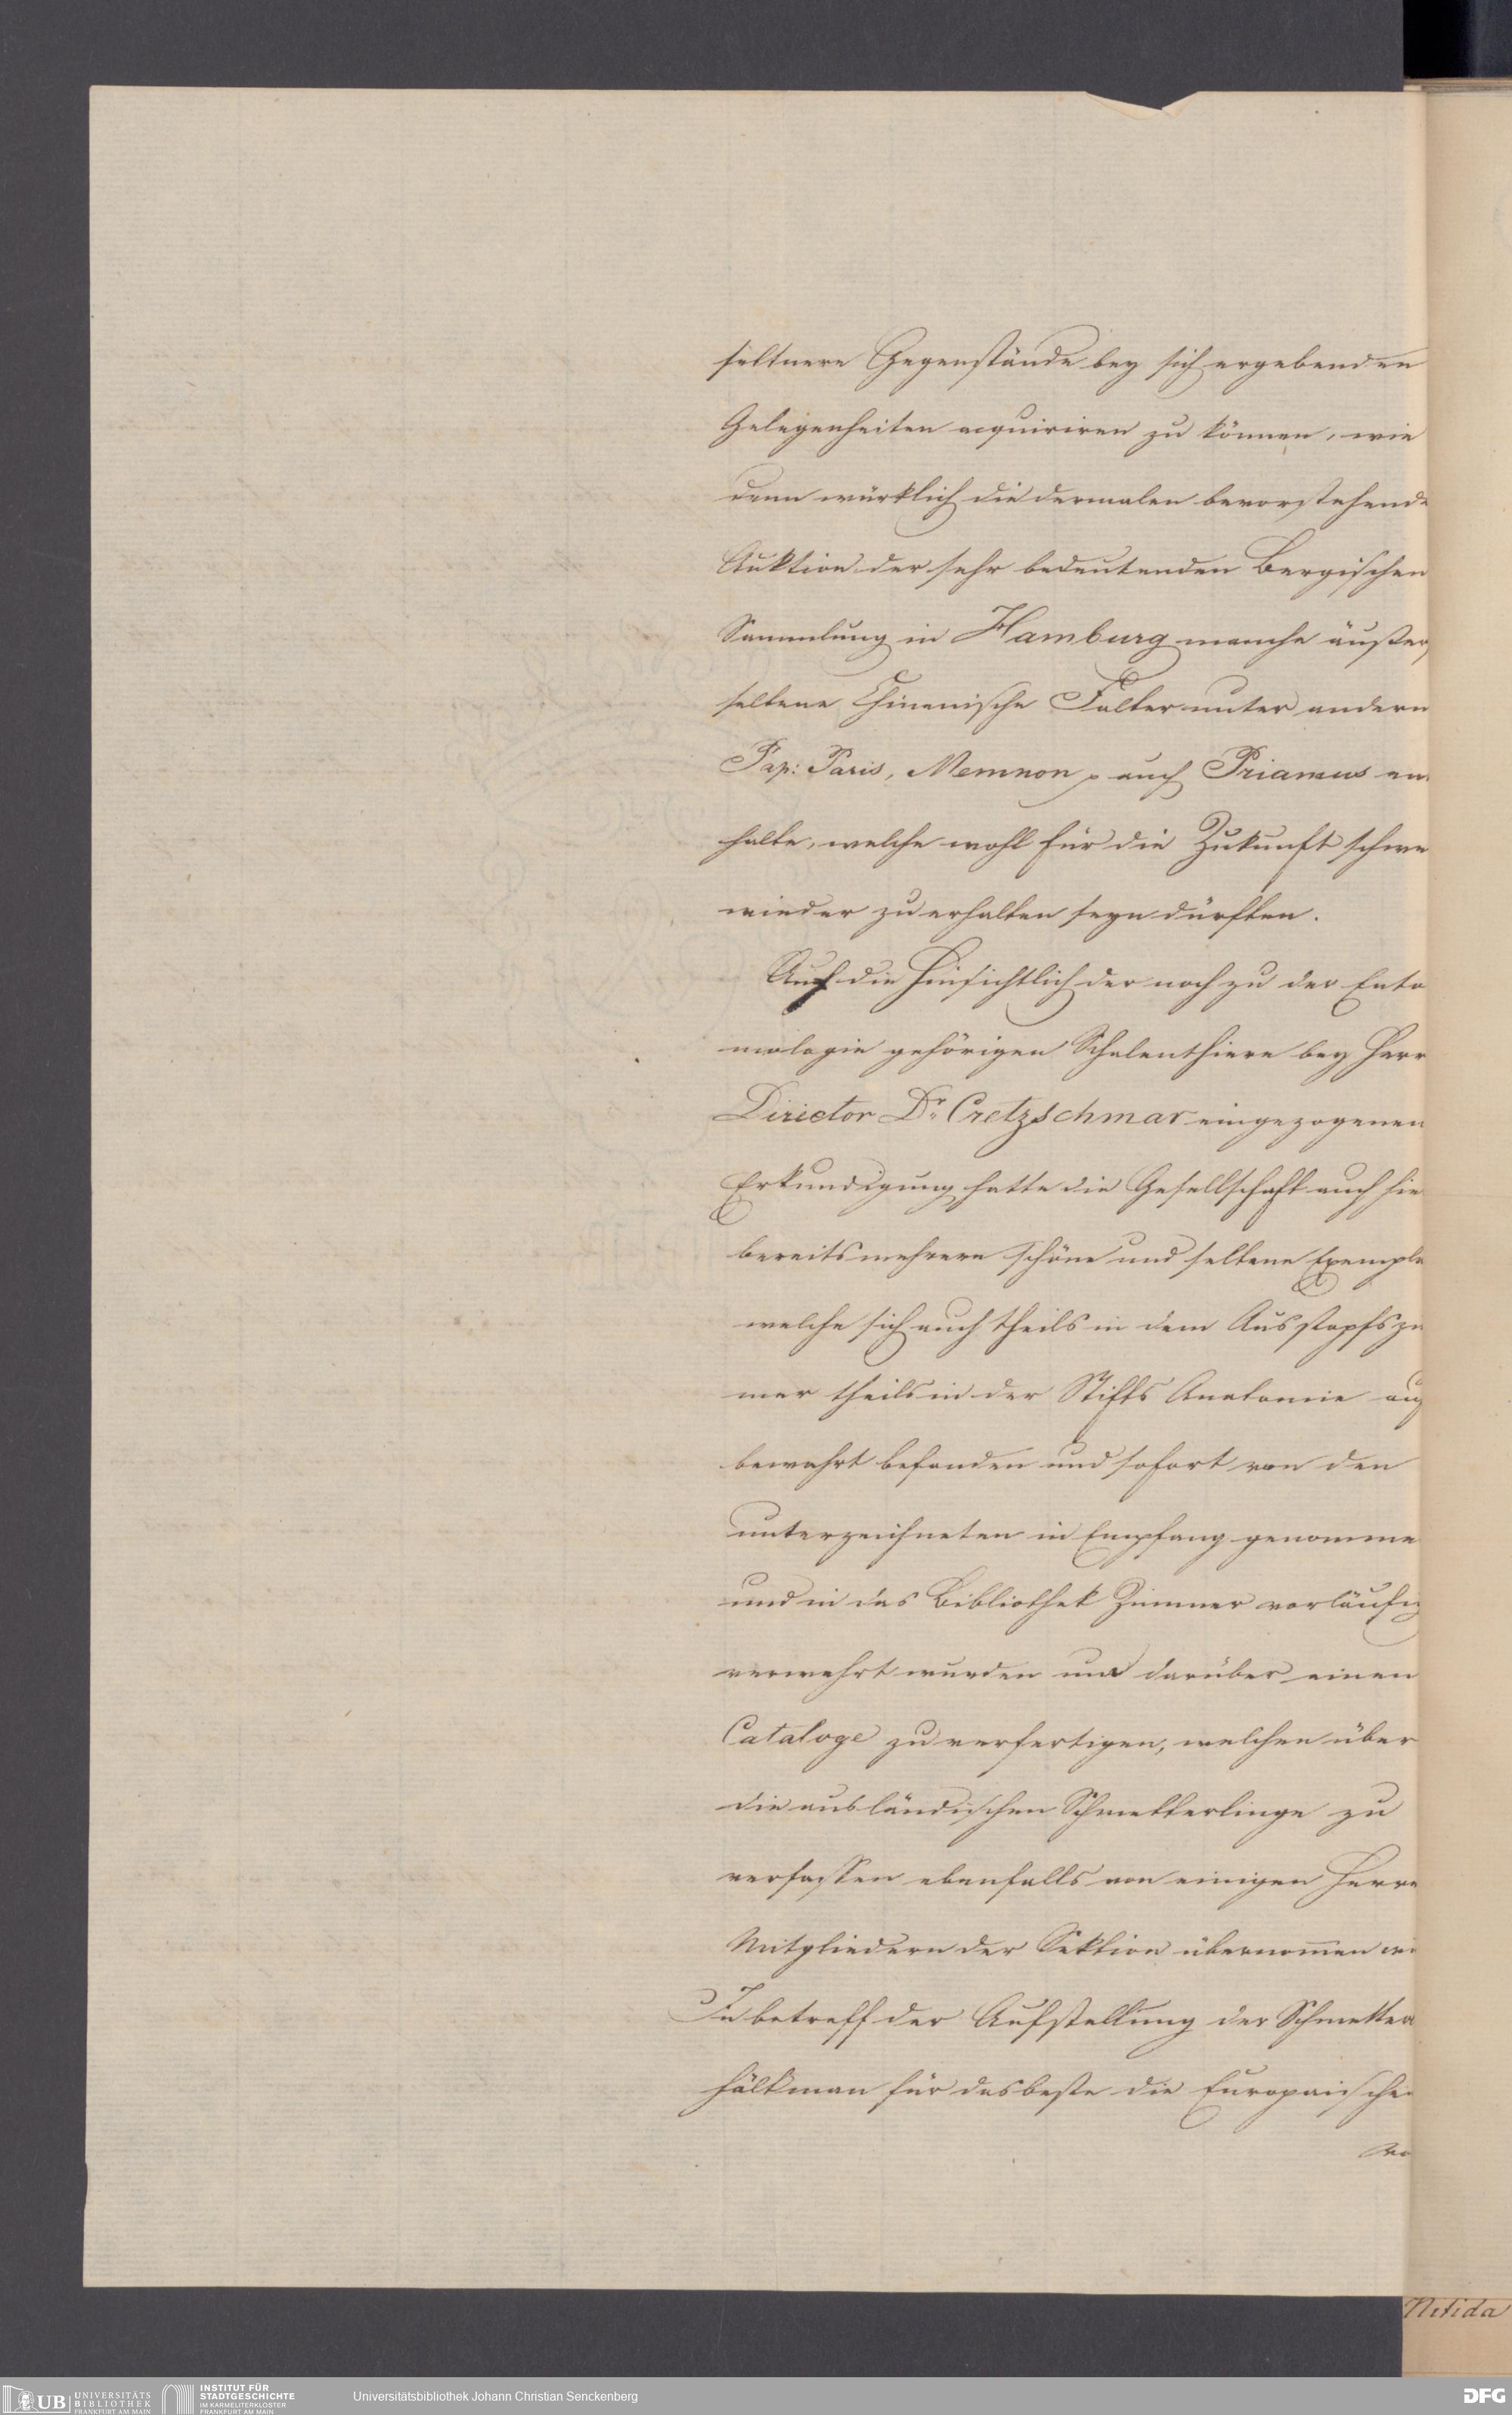 seltnere Gegenstände bey sich ergebenden
Gelegenheiten acquiriren zu können, wie
denn würklich die dermalen bevorstehende
Auktion der sehr bedeutenden Bergischen
Sammlung in Hamburg manche äußer
seltene Chinenische Falter unter andern
Pap: Paris, Memnon p auch Priamus en
halte, welche wohl für die Zukunft schwe
wieder zu erhalten seyn dürften.
Auf die hinsichtlich der noch zu der Ento
mologie gehörigen Schalenthiere bey Herr
Director Dr. Cretzschmar eingezogenen
Erkundigung hatte die Gesellschaft auch hie
bereits mehrere schöne und seltene Exempla
welche sich auch theils in dem Ausstopfszi
mer theils in der Stifts Anatomie auf
bewahrt befanden und sofort von den
unterzeichneten in Empfang genomme
und in das Bibliothek Zimmer vorläufig
verwahrt wurden um darüber einen
Cataloge zu verfertigen, welchen über
die ausländischen Schmetterlinge zu
verfassen ebenfalls von einigen Herre
Mitgliedern der Sektion übernommen w
In betreff der Aufstellung der Schmetter
hält man für das beste die Europaische
Nitida
UB UNIVERSITÄTS BIBLIOTHEK FRANKFURT AM MAIN
INSTITUT FÜR STADTGESCHICHTE IM KARMELITERKLOSTER FRANKFURT AM MAIN
Universitätsbibliothek Johann Christian Senckenberg
DFG